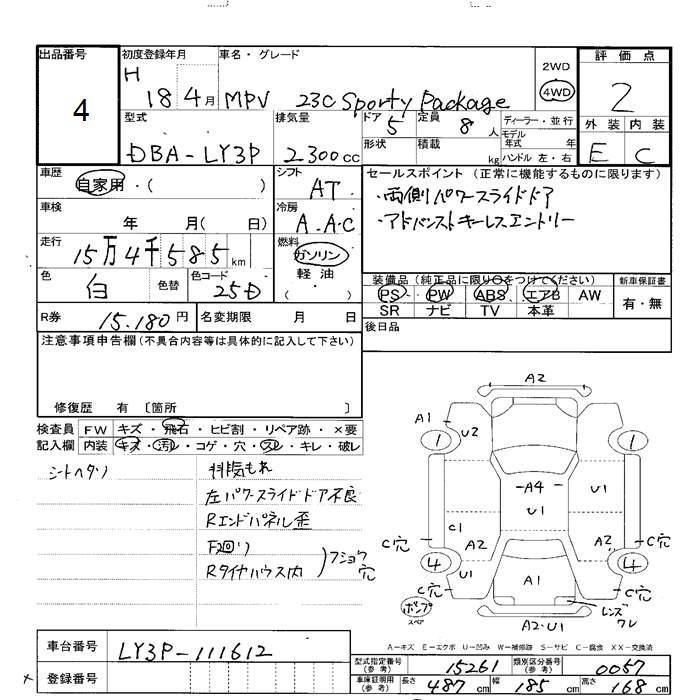 出品番号 初度登録年月 車名・グレード 2WD 評価点
4 H 18 4月 MPV 23C Sporty Package 4WD 2
型式 排気量 ドア 5 定員 8人 ディーラー・並行 外装 内装
DBA-LY3P 2300cc 形状 積載 kg モデル年式 年 ハンドル 左・右 E C
車歴 自家用・( ) シフト AT セールスポイント (正常に機能するものに限ります)
車検 年 月( 日) 冷房 A.A・C ・両側パワースライドドア
・アドバンストキーレスエントリー
走行 15万4千585km 燃料 ガソリン 軽油 ( )
色 白 色替 色コード 25D 装備品 (純正品に限り○をつけてください) 新車保証書
PS PW ABS エアB AW 有・無
SR ナビ TV 本革
R券 15.180円 名変期限 月 日 後日品
注意事項申告欄(不具合内容等は具体的に記入して下さい)
修復歴 有 〔箇所 〕
検査員 FW キズ・飛石・ヒビ割・リペア跡・×要
記入欄 内装 キズ・汚レ・コゲ・穴・スレ・キレ・破レ
シートヘタリ 排気もれ
左パワースライドドア不良
Rエンドパネル歪
F2回り
Rタイヤハウス内 フショク穴
A2
A1 U2
1 1
A4
U1 U1
C1
A2 A2
C穴 C穴
4 4
C穴 U1 A1 C穴
ポンプ レンズワレ
スペア
A2・U1
A-キズ E-エクボ U-凹み W-補修跡 S-サビ C-腐食 XX-交換済
車台番号 LY3P-111612
登録番号
型式指定番号(参考) 15261 類別区分番号(参考) 0057
車庫証明用(参考) 長さ 487cm 幅 185cm 高さ 168cm